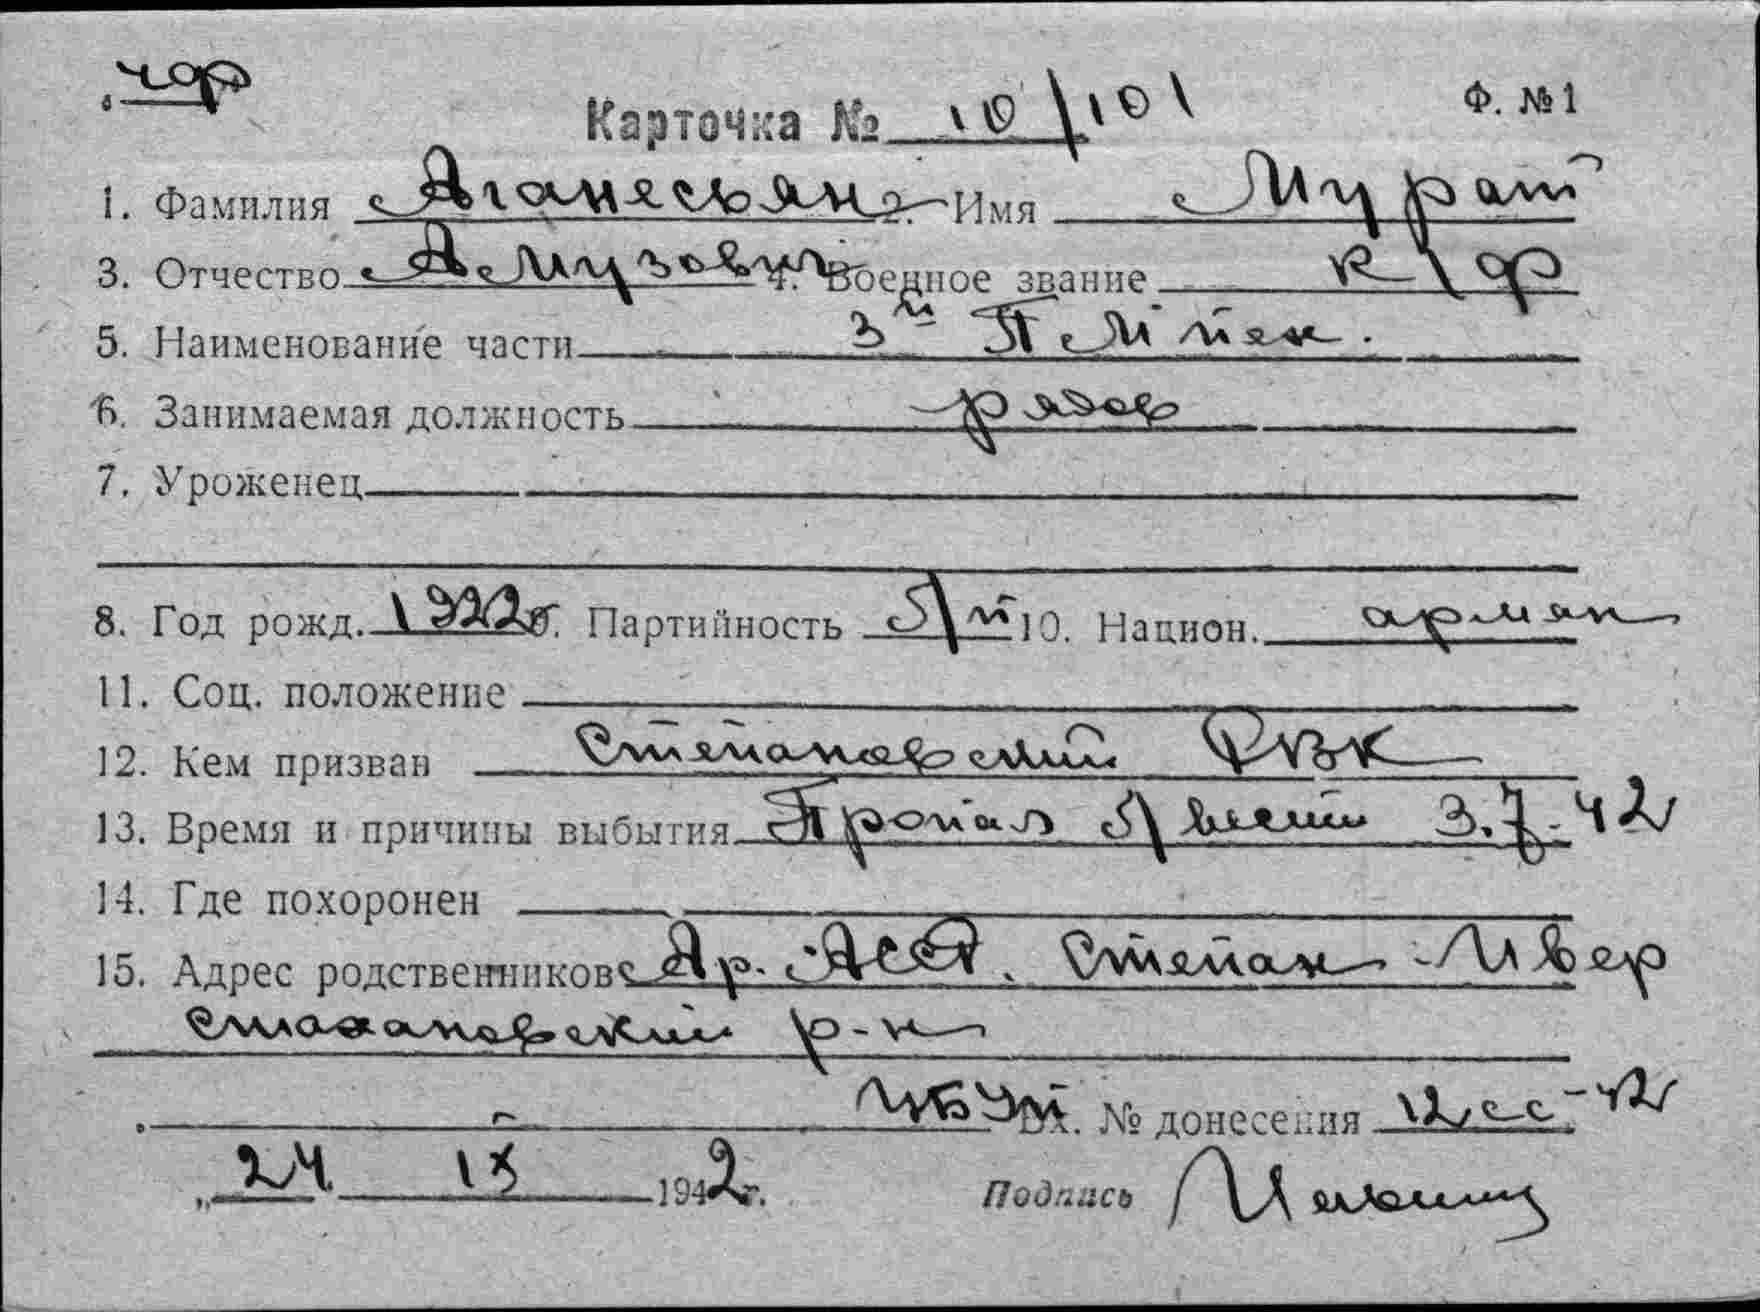 чф
Карточка № 10/101 Ф. № 1
1. Фамилия Аганесьян 2. Имя Мурат
3. Отчество Амузович 4. Военное звание к/ф
5. Наименование части 3й П
6. Занимаемая должность рядов
7. Уроженец
8. Год рожд. 1922 Партийность б/п 10. Национ. армян
11. Соц. положение
12. Кем призван Степановский РВК
13. Время и причины выбытия Пропал б/вести 3.7.42
14. Где похоронен
15. Адрес родственников Ар. АССР. Степан
р-н
Вх. № донесения 12сс-42
„24 IX 1942г. Подпись